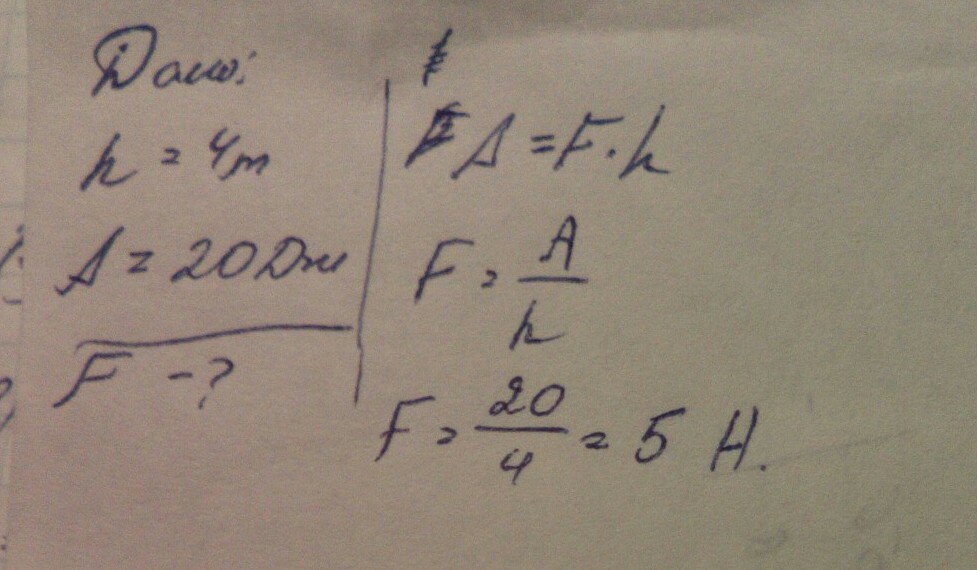 Дано:
h = 4м
A = 20 Дж
F - ?
A = F · h
F = A / h
F = 20 / 4 = 5 Н.